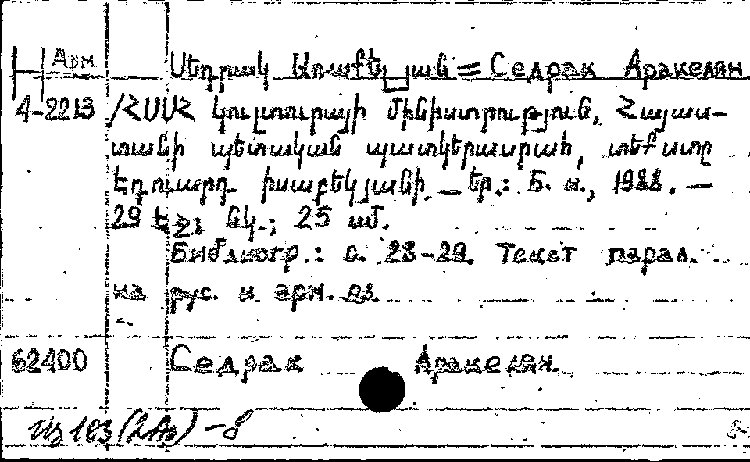 Арм
Սեդրակ Առաքելյան = Седрак Аракелян
4-2213 /ՀՍՍՀ կուլտուրայի մինիստրություն, Հայաս-
տանի պետական պատկերասրահ, տեքստը
Էդուարդ Իսաբեկյանի. – Եր.: Б. и., 1988. –
29 էջ; նկ.; 25 սմ.
Библиогр.: с. 28-29. Текст парал.
на рус. и арм. яз.
62400 Седрак Аракелян.
Из 103 (2Ар) - 8